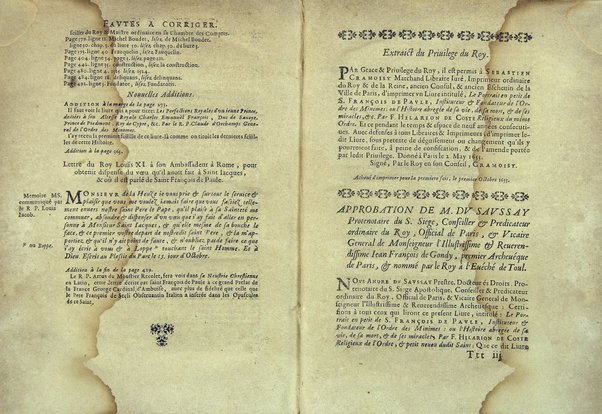 FAVTES A CORRIGER.
seiller du Roy & Maistre ordinaire en sa Chambre des Comptes.
Michel Boudet, lisez, de Michel Boudet.
ligne 30. chap. 5. du livre 4. lisez, chap. 5. du livre 3.
ligne 40. Franquelin, lisez, Tanquelin.
ligne 11. passage, lisez, passage d'hyver.
construction, lisez, la construction.
Page 480. ligne 4. 1516. lisez 1514.
ligne 18. delinquans, lisez, delinquans.
Fondateur, lisez, Fondatrice.
Nouvelles Additions.
ADDITION à la marge de la page 255.
Il faut voir le livre qui a pour titre Les Perfections Royales d'vn ieune Prince,
dediées à son Altesse Royale Charles Emanuel François, Duc de Sauoye,
Prince de Piedmont, Roy de Cypre, &c. Par le R. P. Claude Guichard, General
de l'Ordre des Minimes.
feüilles de cette Histoire.
Addition à la page 365.
Lettre du Roy Louys XI. à son Ambassadeur à Rome, pour
obtenir dispense du vœu qu'il auoit fait à Saint Jacques,
& où il est parlé de Saint François de Paule.
Memoire MS.
communiqué par
le R. P. Louis
Jacob.
MONSIEUR de la Heuse ie vous prie & sur tout le seruice &
plaisir que vous me voulez iamais faire que vous faciez tel-
lement enuers nostre Saint Pere le Pape, qu'il plaise à sa Sainteté me
commuer, absoudre & dispenser d'vn vœu que i'ay fait d'aller en per-
sonne à Monsieur Saint Jacques, & qu'elle mesme de sa bouche le
face, & ce premier nostre depart de nostredit Saint Pere, & n'ap-
portez, & qu'il n'y ait point de faute, & n'oubliez pas de faire ce que
i'ay escrit à vous & à Ieppe * touchant le saint Homme. Et à
Dieu. Escrit au Plessis du Parc le 15. iour d'Octobre.
* ou Beppe.
Addition à la fin de la page 419.
Le R. P. Artus du Moustier Recolet, fera voir dans sa Neustrie Chrestienne
en Latin, cette Lettre écrite par saint François de Paule à ce grand Prelat de
la France George Cardinal d'Amboise, auec plus de fidelité que celle que
le Pere François de Seyli Obseruantin Italien a inserée dans les Opuscules
de ce Saint.
Extraict du Priuilege du Roy.
PAR Grace & Priuilege du Roy, il est permis à SEBASTIEN
CRAMOISY Marchand Libraire Iuré, Imprimeur ordinaire
du Roy & de la Reine, ancien Consul, & ancien Escheuin de la
Ville de Paris, d'imprimer vn Liure intitulé, Le Portrait en petit de
S. FRANÇOIS DE PAVLE, Instituteur & Fondateur de l'Or-
dre des Minimes: ou l'Histoire abregée de sa vie, de sa mort, & de ses
miracles, &c. Par F. HILARION DE COSTE Religieux du mesme
Ordre. Et ce pendant le temps & espace de neuf années consecuti-
ues. Auec defenses à tous Libraires & Imprimeurs d'imprimer le-
dit Liure, sous pretexte de déguisement ou changement qu'ils y
pourroient faire, à peine de confiscation, & de l'amende portée
par ledit Priuilege. Donné à Paris le 2. May 1655.
Signé, Par le Roy en son Conseil, CRAMOISY.
Acheué d'imprimer pour la premiere fois, le premier Octobre 1655.
APPROBATION DE M. DV SAVSSAY
Protenotaire du S. Siege, Conseiller & Predicateur
ordinaire du Roy, Official de Paris, & Vicaire
General de Monseigneur l'Illustrissime & Reueren-
dissime Iean François de Gondy, premier Archeuéque
de Paris, & nommé par le Roy à l'Euéché de Toul.
NOVS ANDRE DV SAVSSAY Prestre, Docteur és Droits, Pro-
tenotaire du S. Siege Apostolique, Conseiller & Predicateur
ordinaire du Roy, Official de Paris, & Vicaire General de Mon-
seigneur l'Illustrissime & Reuerendissime Archeuéque: Certi-
fions à tous ceux qui liront ce present Liure, intitulé: Le Por-
trait en petit de S. FRANÇOIS DE PAVLE, Instituteur &
Fondateur de l'Ordre des Minimes: ou l'Histoire abregée de sa
vie, de sa mort, & de ses miracles: Par F. HILARION DE COSTE
Religieux de l'Ordre, & petit neueu dudit Saint: Que ce dit Liure
Ttt iij